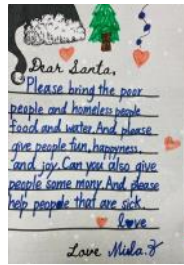 Dear Santa,
Please bring the poor
people and homeless people
food and water. And please
give people fun, happyness,
and joy. Can you also give
people some mony. And please
help people that are sick.
love
Love Mula.